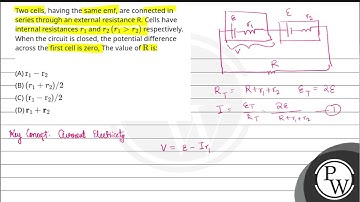 Two cells, having the same emf, are connected in
series through an external resistance R. Cells have
internal resistances r₁ and r₂ (r₁ > r₂) respectively.
When the circuit is closed, the potential difference
across the first cell is zero, The value of R is:
(A) r₁ − r₂
(B) (r₁ + r₂)/2
(C) (r₁ − r₂)/2
(D) r₁ + r₂
Key Concept: Current Electricity
ε r₁ ε r₂
V
R
R_T = R+r₁+r₂ ε_T = 2ε
I = ε_T/R_T = 2ε/(R+r₁+r₂) —①
V = ε − Ir₁
P
W